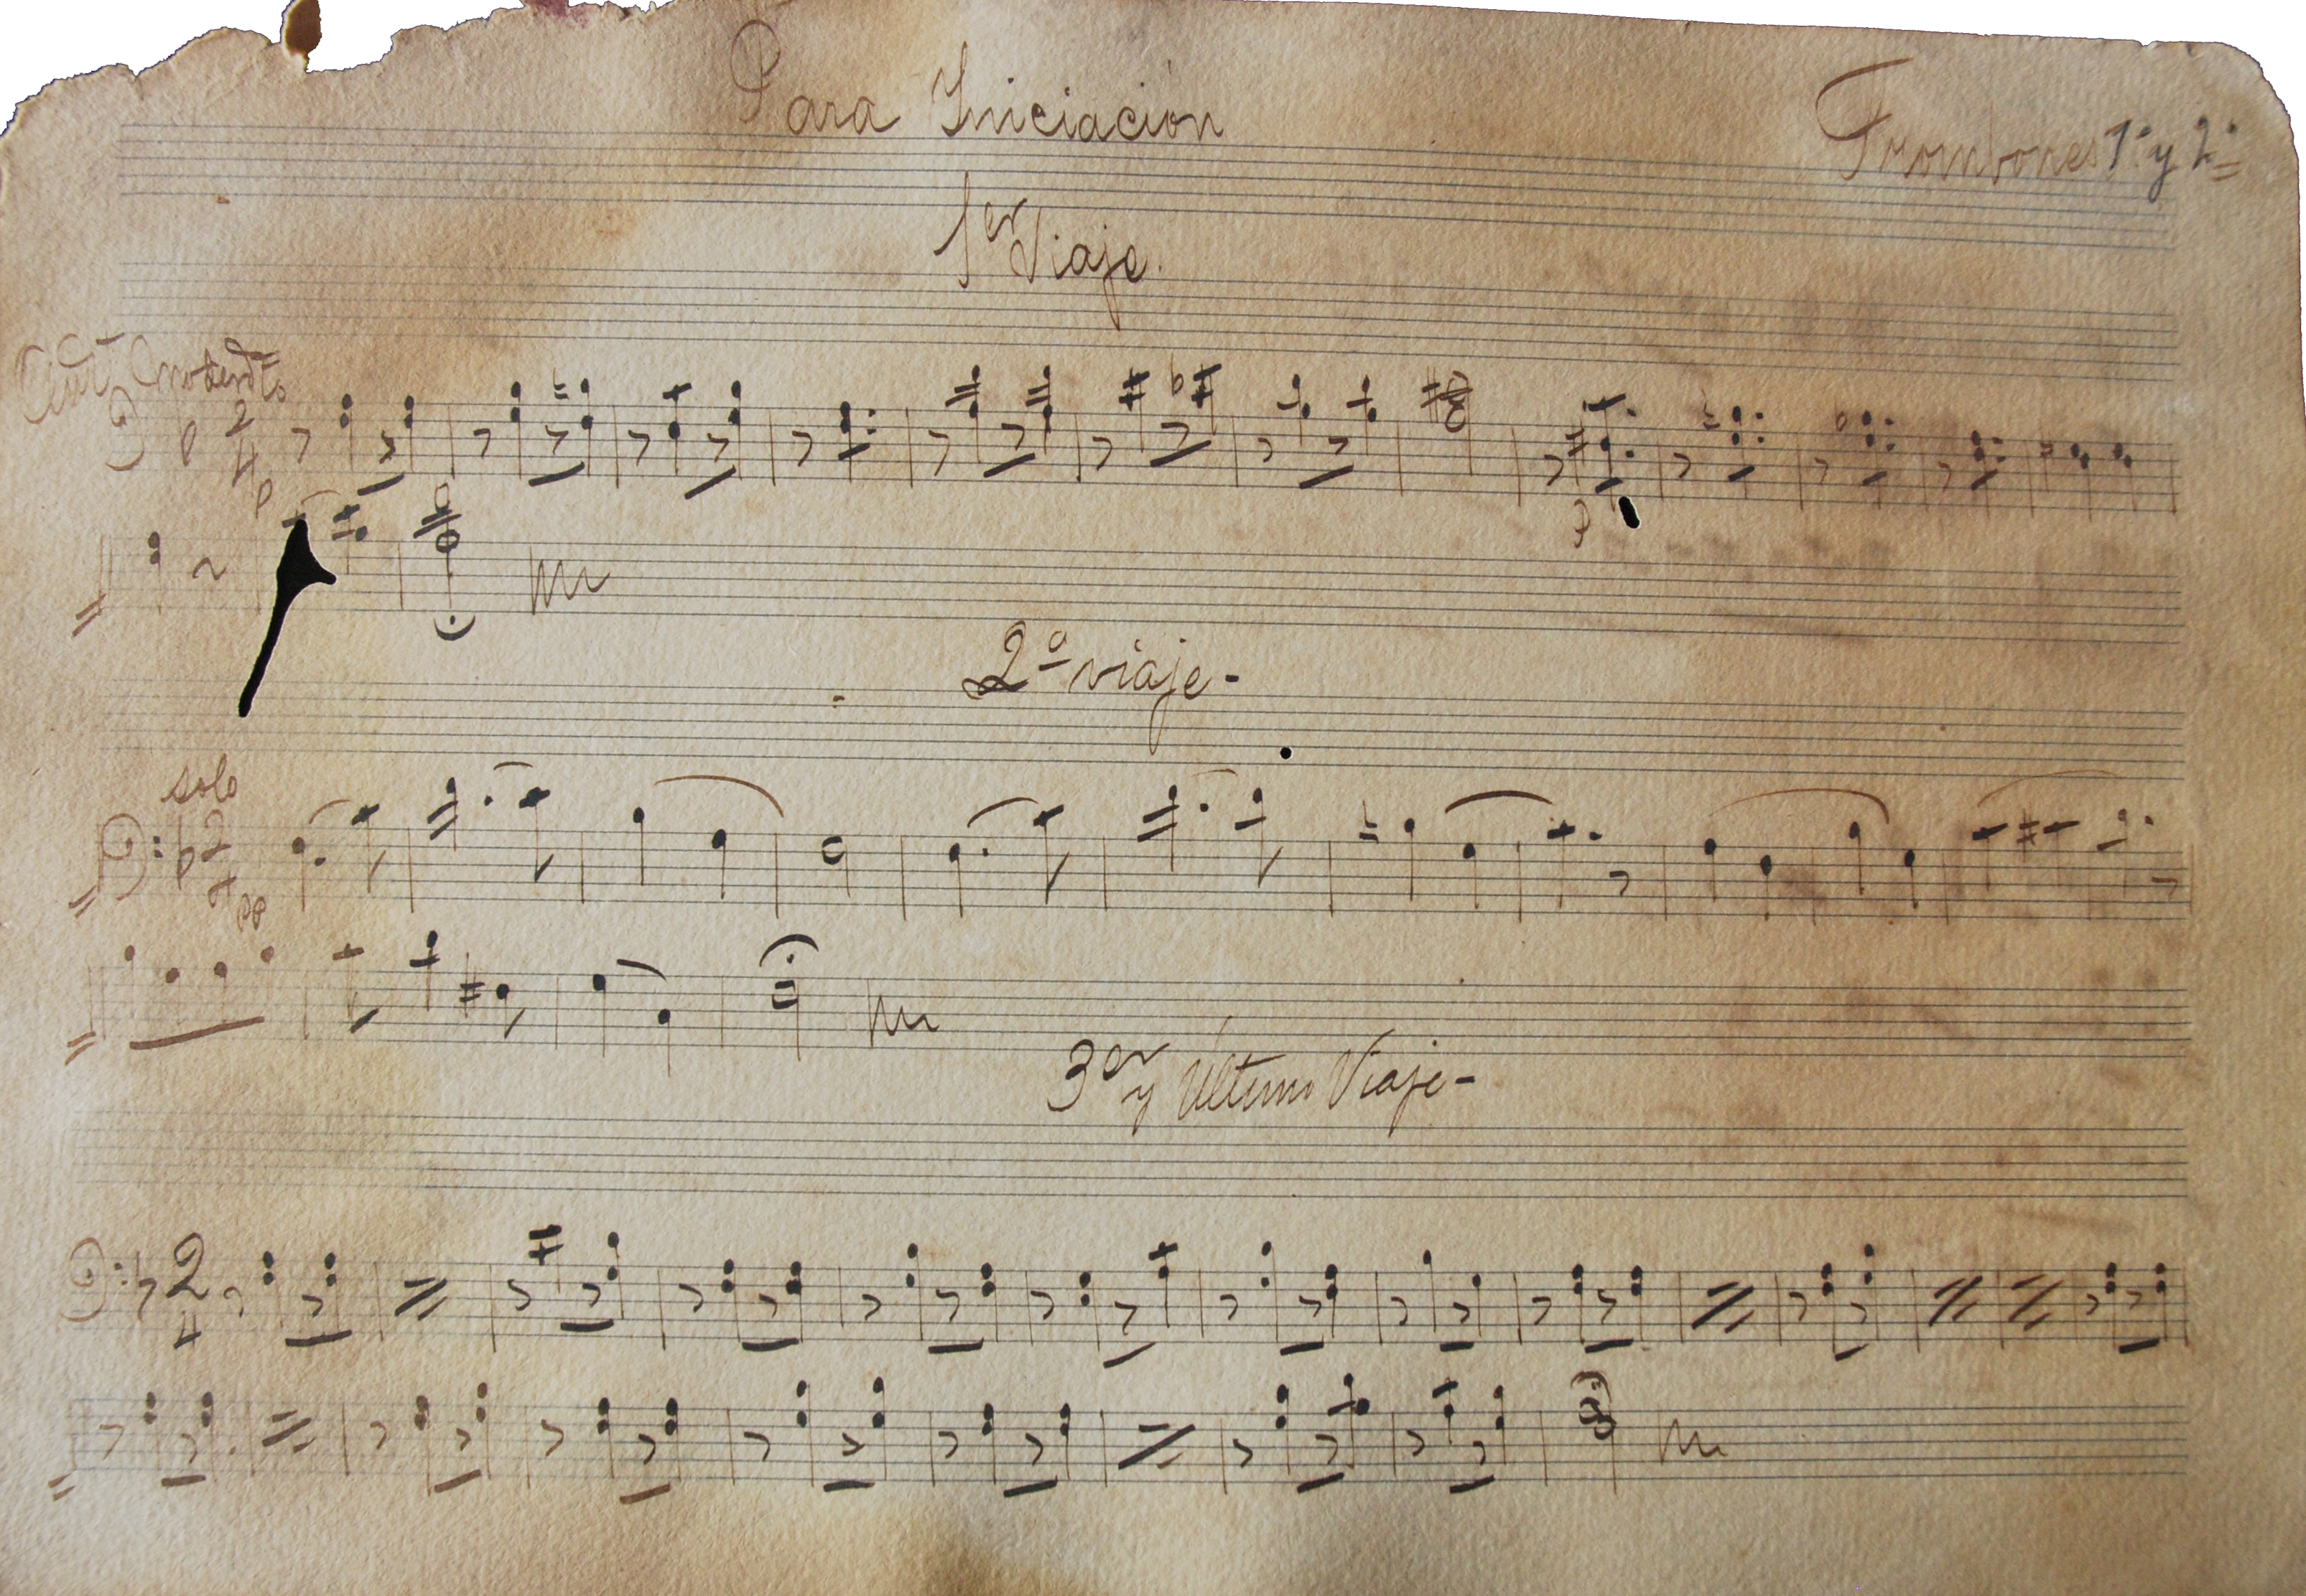 Para Iniciación
Trombones 1º y 2º
1er Viaje.
2
4
p
2º viaje-
solo
2
4
pp
3er y Último Viaje-
2
4